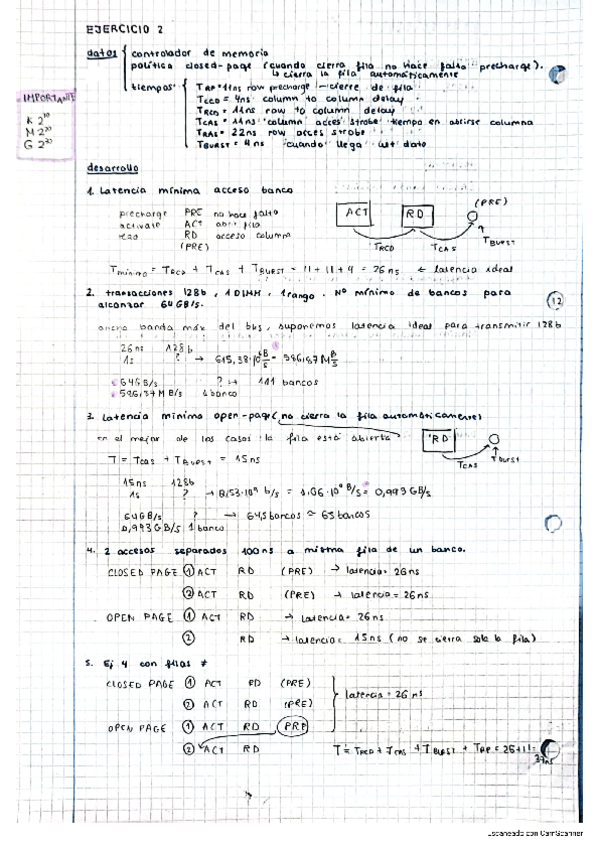 EJERCICIO 2
datos
controlador de memoria
política closed-page (cuando cierra fila no hace falta precharge).
↳ cierra la fila automáticamente
tiempos
TRP = 11ns row precharge - cierre de fila
TCCD = 4ns column to column delay
TRCD = 11ns row to column delay
TCAS = 11ns column acces strobe tiempo en abrirse columna
TRAS = 22ns row acces strobe
TBURST = 4ns cuando llega últ dato
IMPORTANTE
K 2^10
M 2^20
G 2^30
desarrollo
1. Latencia mínima acceso banco
precharge PRE no hace falta
activate ACT abrir fila
read RD acceso columna
(PRE)
ACT RD (PRE)
TRCD TCAS TBURST
Tmínimo = TRCD + TCAS + TBURST = 11 + 11 + 4 = 26ns ← latencia ideal
2. transacciones 128b, 1 DIMM, 1 rango. Nº mínimo de bancos para
alcanzar 64GB/s.
12
ancho banda máx del bus, suponemos latencia ideal para transmitir 128b
26ns 128b
1s ? → 615,38·10^6 B/s = 586,87 MB/s
64GB/s ? → 111 bancos
586,87MB/s 1 banco
3. Latencia mínima open-page (no cierra la fila automáticamente)
en el mejor de los casos la fila está abierta
RD
TCAS TBURST
T = TCAS + TBURST = 15ns
15ns 128b
1s ? → 8,53·10^9 b/s = 1,06·10^9 B/s = 0,993 GB/s
64GB/s ? → 64,5 bancos ≈ 65 bancos
0,993GB/s 1 banco
4. 2 accesos separados 100ns a misma fila de un banco.
CLOSED PAGE ① ACT RD (PRE) → latencia = 26ns
② ACT RD (PRE) → latencia = 26ns
OPEN PAGE ① ACT RD → latencia = 26ns
② RD → latencia = 15ns (no se cierra sola la fila)
5. Ej 4 con filas ≠
CLOSED PAGE ① ACT RD (PRE)
② ACT RD (PRE)
latencia = 26 ns
OPEN PAGE ① ACT RD PRE
② ACT RD T = TRCD + TCAS + TBURST + TRP = 26 + 11 =
37ns
Escaneado con CamScanner